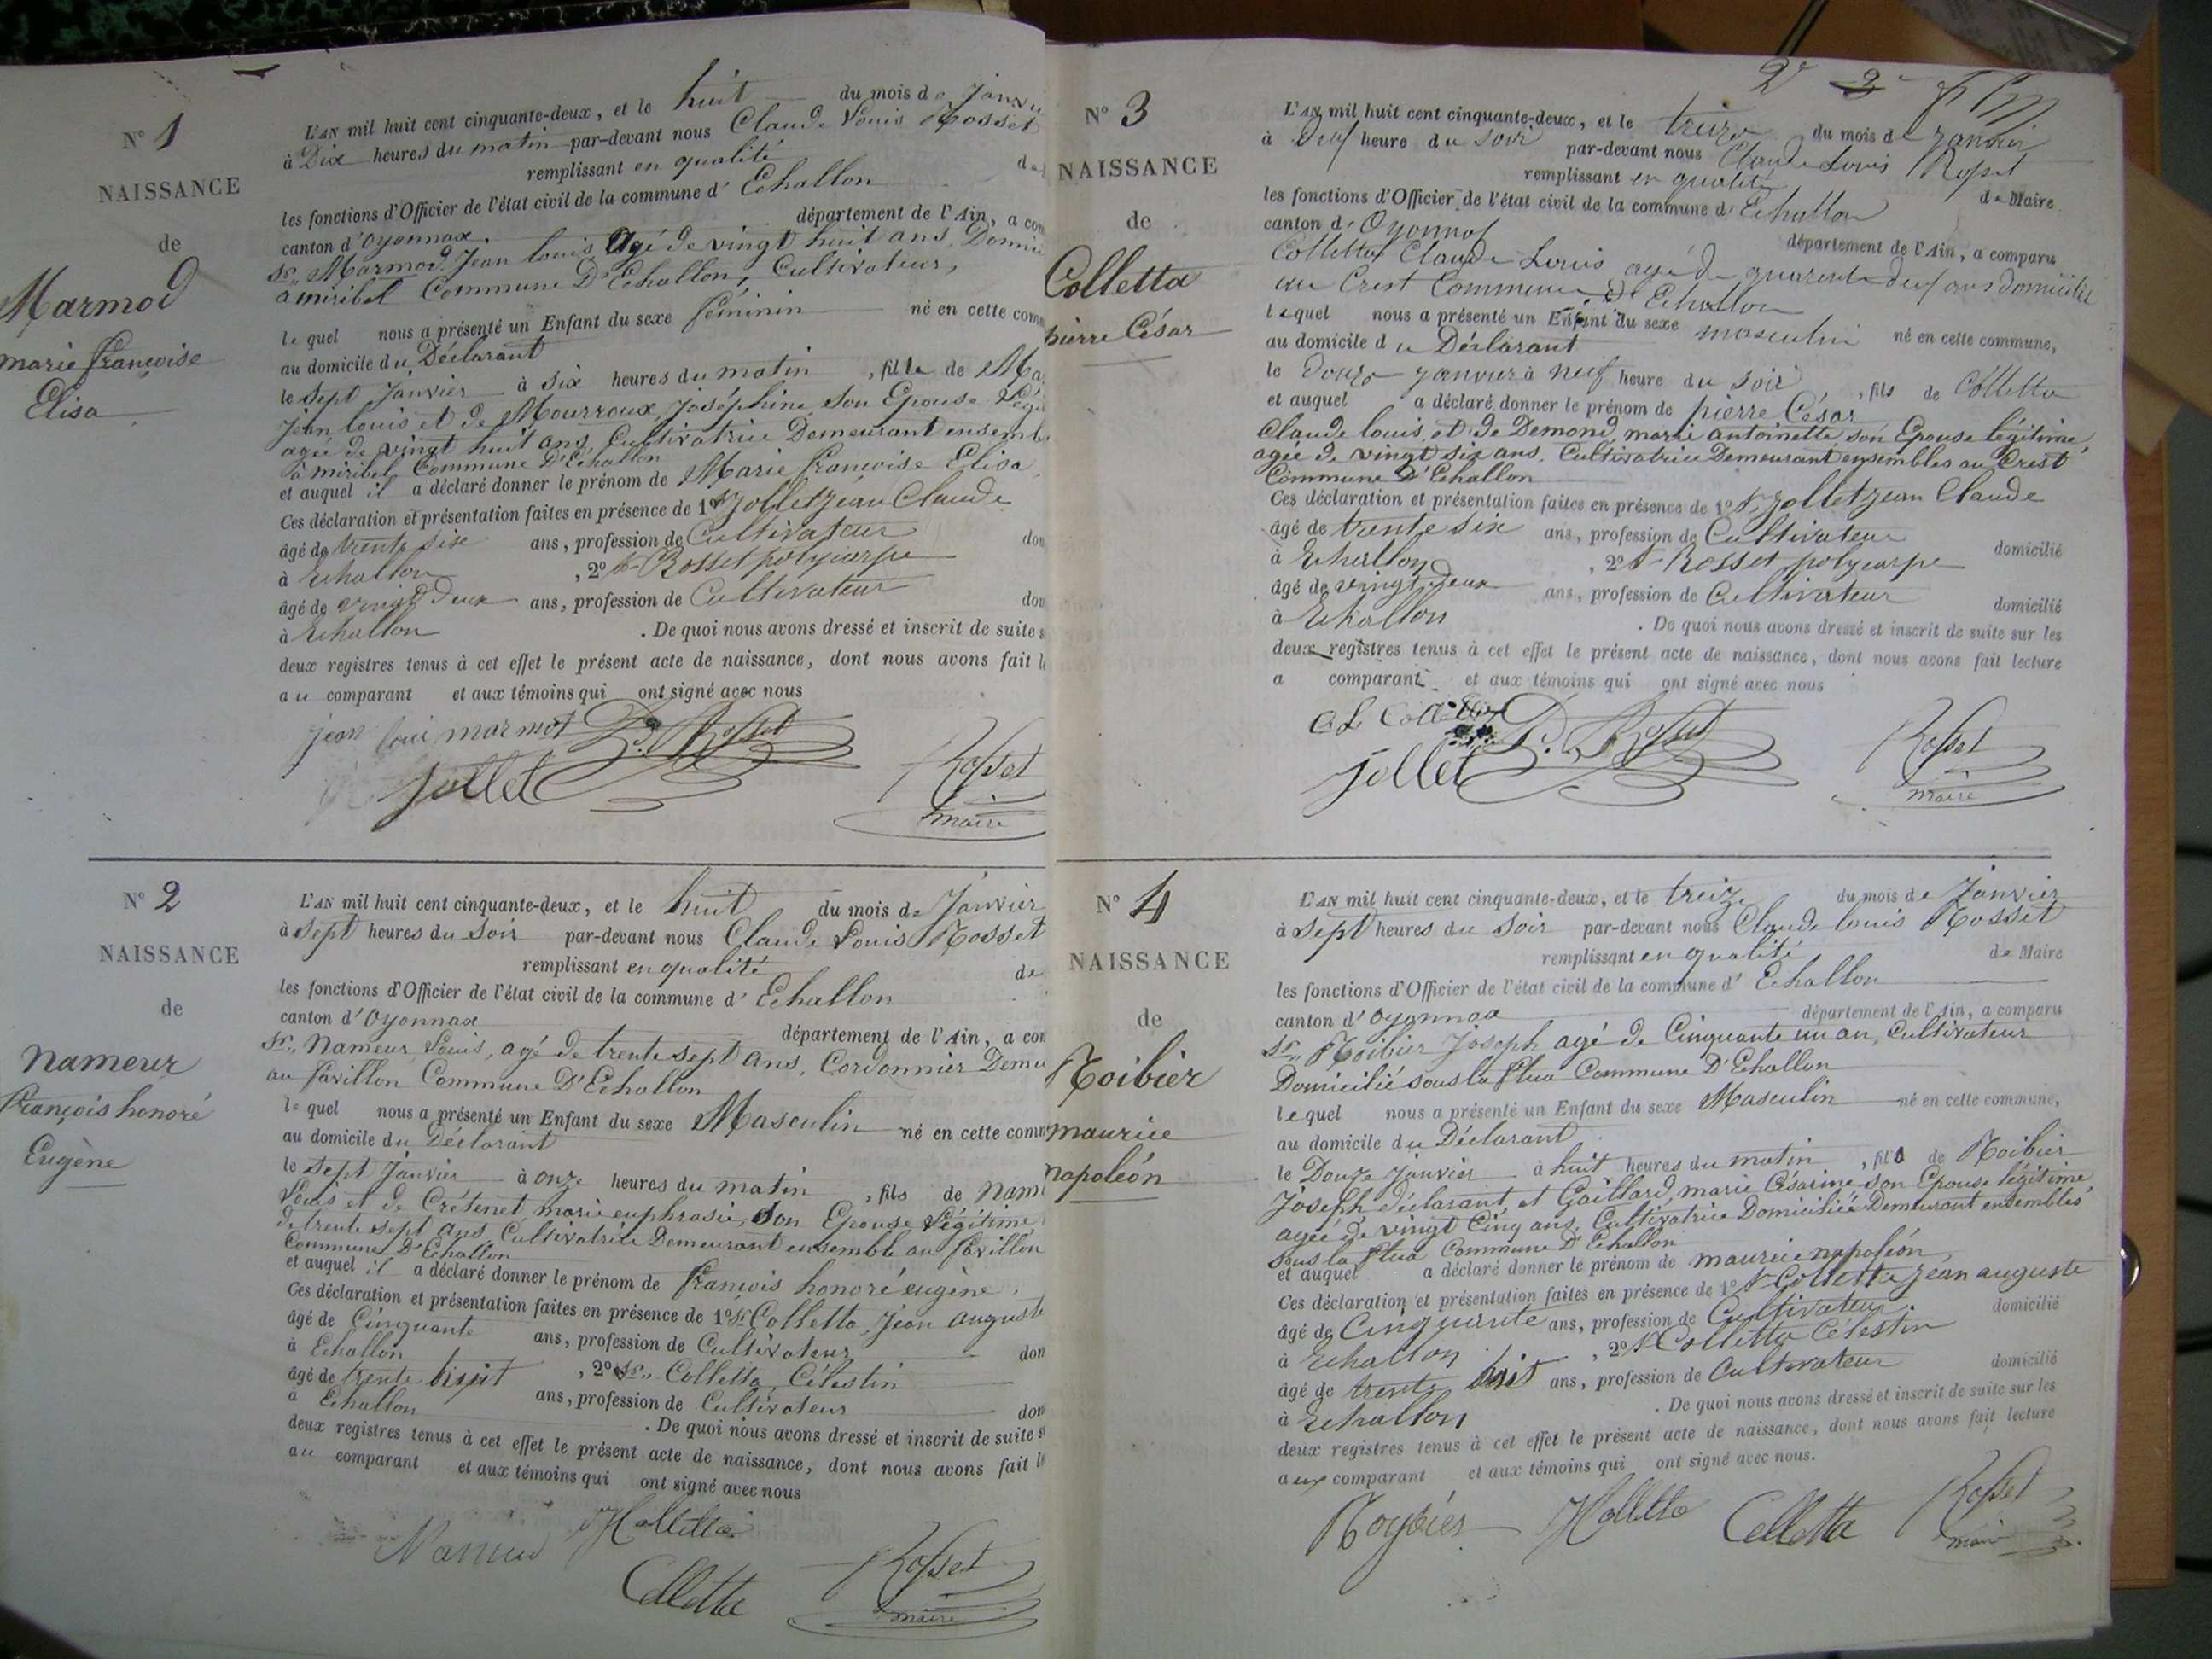 N° 1
NAISSANCE
de
Marmod
marie françoise
Elisa
L'AN mil huit cent cinquante-deux, et le huit du mois de Janvi
à Dix heures du matin par-devant nous Claude Louis Rosset
remplissant en qualité de
les fonctions d'Officier de l'état civil de la commune d' Echallon
canton d'Oyonnax. département de l'Ain, a com
Sr. Marmod Jean louis, Agé de vingt huit ans, Domici
à miribel Commune D'Echallon, Cultivateur,
le quel nous a présenté un Enfant du sexe féminin né en cette comm
au domicile du Déclarant
le sept Janvier à six heures du matin , fille de Ma
jean louis et de Mourroux, Joséphine, son Epouse Légi
agée de vingt huit ans, Cultivatrice Demeurant ensemb
à miribel Commune D'Echallon
et auquel il a déclaré donner le prénom de Marie françoise Elisa,
Ces déclaration et présentation faites en présence de 1° Sr Jollet jean Claude
âgé de trente six ans, profession de Cultivateur dom
à Echallon , 2° Sr Rosset polycarpe
âgé de vingt deux ans, profession de Cultivateur dom
à Echallon . De quoi nous avons dressé et inscrit de suite s
deux registres tenus à cet effet le présent acte de naissance, dont nous avons fait l
au comparant et aux témoins qui ont signé avec nous
jean loui marmot P. Rosset
Jollet Rosset
maire
N° 2
NAISSANCE
de
Nameur
François honoré
Eugène
L'AN mil huit cent cinquante-deux, et le huit du mois de Janvier
à sept heures du soir par-devant nous Claude Louis Rosset
remplissant en qualité de
les fonctions d'Officier de l'état civil de la commune d' Echallon
canton d'Oyonnax département de l'Ain, a com
Sr., Nameur, Louis, agé de trente sept ans, Cordonnier Deme
au favillon Commune D'Echallon
le quel nous a présenté un Enfant du sexe Masculin né en cette comm
au domicile du Déclarant
le sept Janvier à onze heures du matin , fils de Nam
Louis et de Crétenet marie euphrasie, son Epouse Légitime
de trente sept ans, Cultivatrice Demeurant ensemble au favillon
Commune D'Echallon
et auquel il a déclaré donner le prénom de françois honoré eugène,
Ces déclaration et présentation faites en présence de 1° Sr Colletta, Jean auguste
âgé de Cinquante ans, profession de Cultivateur dom
à Echallon , 2° Sr., Colletta, Célestin
âgé de trente huit ans, profession de Cultivateur dom
à Echallon . De quoi nous avons dressé et inscrit de suite s
deux registres tenus à cet effet le présent acte de naissance, dont nous avons fait le
au comparant et aux témoins qui ont signé avec nous
Colletta
Colletta Rosset
maire
2e 3e
N° 3
NAISSANCE
de
Colletta
pierre César
L'AN mil huit cent cinquante-deux, et le treize du mois de janvier
à heure du soir par-devant nous Claude Louis Rosset
remplissant en qualité de Maire
les fonctions d'Officier de l'état civil de la commune d' Echallon
canton d' Oyonnax département de l'Ain, a comparu
Colletta Claude Louis agé de quarente deux ans domicilié
au Crest Commune de Echallon
lequel nous a présenté un Enfant du sexe masculin né en cette commune,
au domicile du Déclarant
le Douze janvier à neuf heure du soir , fils de Colletta
et auquel a déclaré donner le prénom de pierre César
Claude louis, et de Demond, marie antoinette, son Epouse légitime,
agée de vingt six ans, Cultivatrice Demeurant ensembles au Crest
Commune D'Echallon
Ces déclaration et présentation faites en présence de 1° Sr Jollet jean Claude
âgé de trente six ans, profession de Cultivateur domicilié
à Echallon , 2° Sr Rosset polycarpe
âgé de vingt deux ans, profession de Cultivateur domicilié
à Echallon . De quoi nous avons dressé et inscrit de suite sur les
deux registres tenus à cet effet le présent acte de naissance, dont nous avons fait lecture
a comparant et aux témoins qui ont signé avec nous
C L Colletta P. Rosset Rosset
Jollet maire
N° 4
NAISSANCE
de
Roibier
maurice
napoléon
L'AN mil huit cent cinquante-deux, et le treize du mois de Janvier
à sept heures du soir par-devant nous Claude louis Rosset
remplissant en qualité de Maire
les fonctions d'Officier de l'état civil de la commune d' Echallon
canton d'Oyonnax département de l'Ain, a comparu
Sr., Roibier Joseph agé de Cinquante un an, Cultivateur
Domicilié sous la flua Commune D'Echallon
lequel nous a présenté un Enfant du sexe Masculin né en cette commune,
au domicile du Déclarant
le Douze Janvier à huit heures du matin , fils de Roibier
Joseph déclarant, et Gaillard, marie Césarine son Epouse légitime
agée de vingt Cinq ans, Cultivatrice Domiciliée Demeurant ensembles
sous la flua Commune D'Echallon
et auquel a déclaré donner le prénom de maurice napoléon,
Ces déclaration et présentation faites en présence de 1° Sr Colletta jean auguste
âgé de Cinquante ans, profession de Cultivateur. domicilié
à Echallon , 2° Sr Colletta Célestin
âgé de trente huit ans, profession de Cultivateur domicilié
à Echallon . De quoi nous avons dressé et inscrit de suite sur les
deux registres tenus à cet effet le présent acte de naissance, dont nous avons fait lecture
aux comparant et aux témoins qui ont signé avec nous.
Roybier Colletta Colletta Rosset
maire